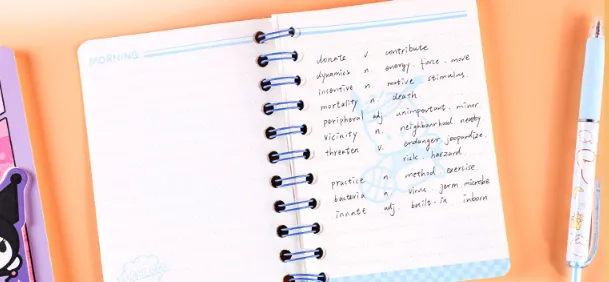 MORNING
donate v. contribute
dynamics n. energy. force. move
incentive n. motive stimulus.
mortality n. death
peripheral adj. unimportant. minor
vicinity n. neighbourhood nearby
threaten v. endanger. jeopardize.
risk. harzard.
practice n. method exercise
bacteria n. virus. germ. microbe
innate adj. built-in inborn